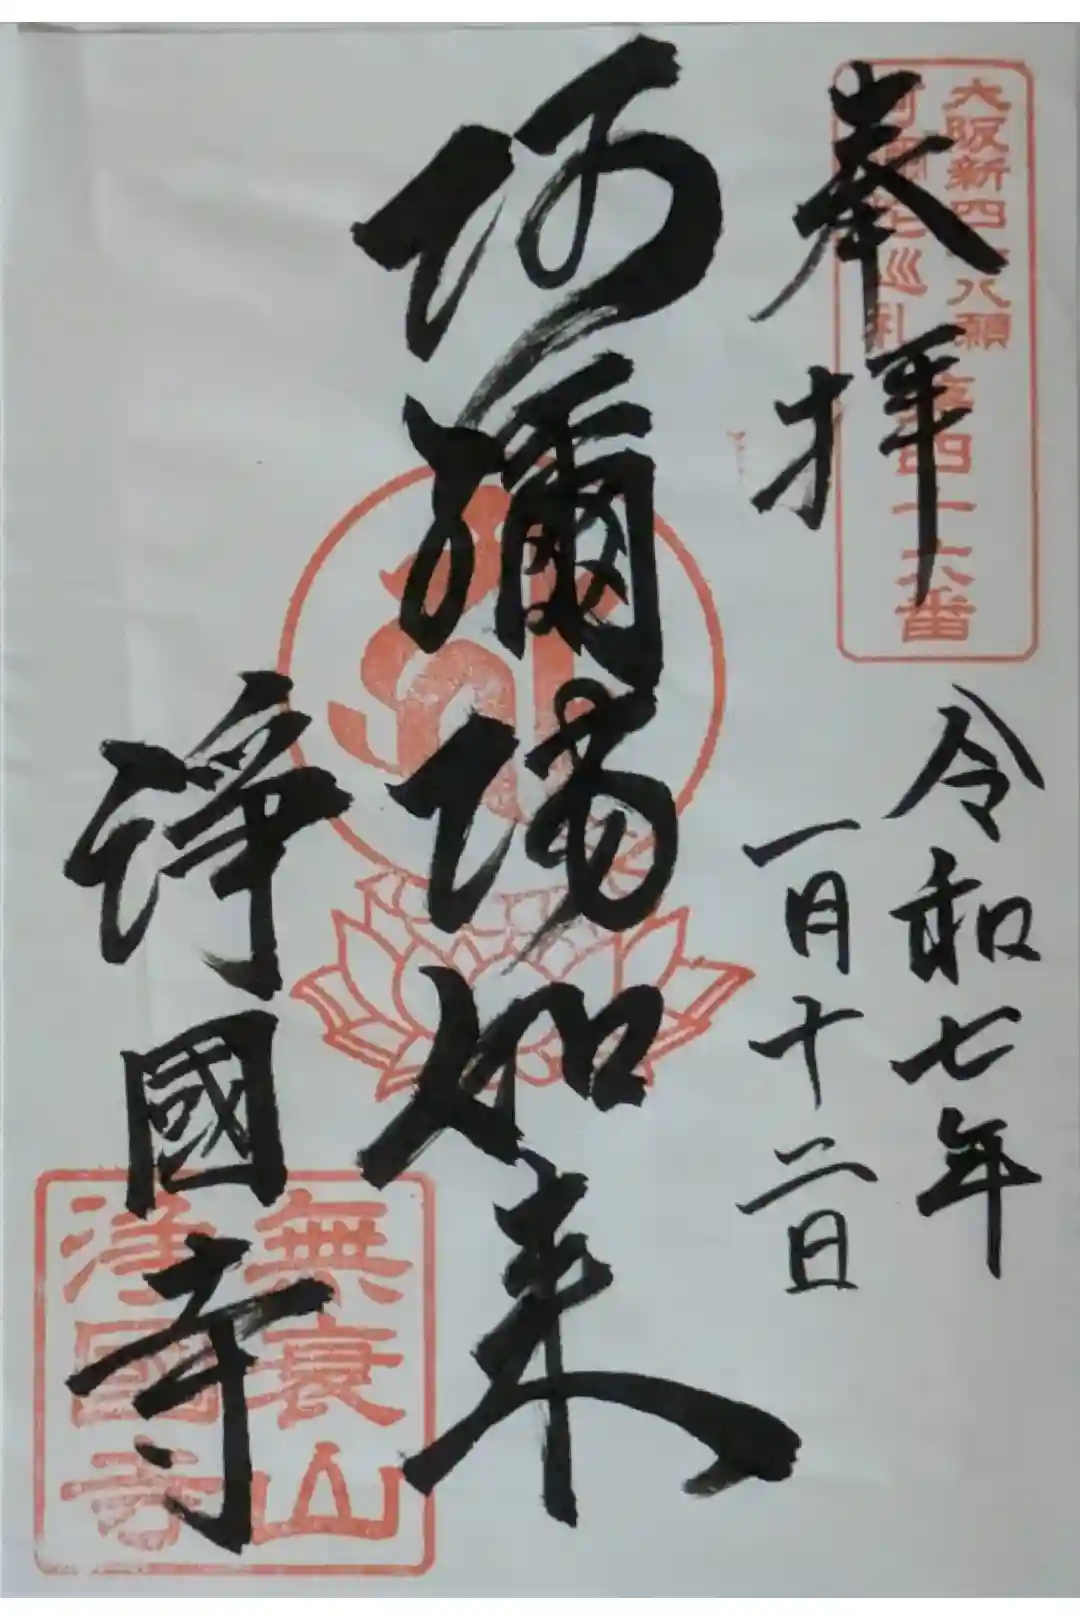 大阪新四十八願
阿弥陀巡礼
第四十六番
奉拝
令和七年
一月十二日
阿彌陀如来
淨國寺
無衰山
淨國寺